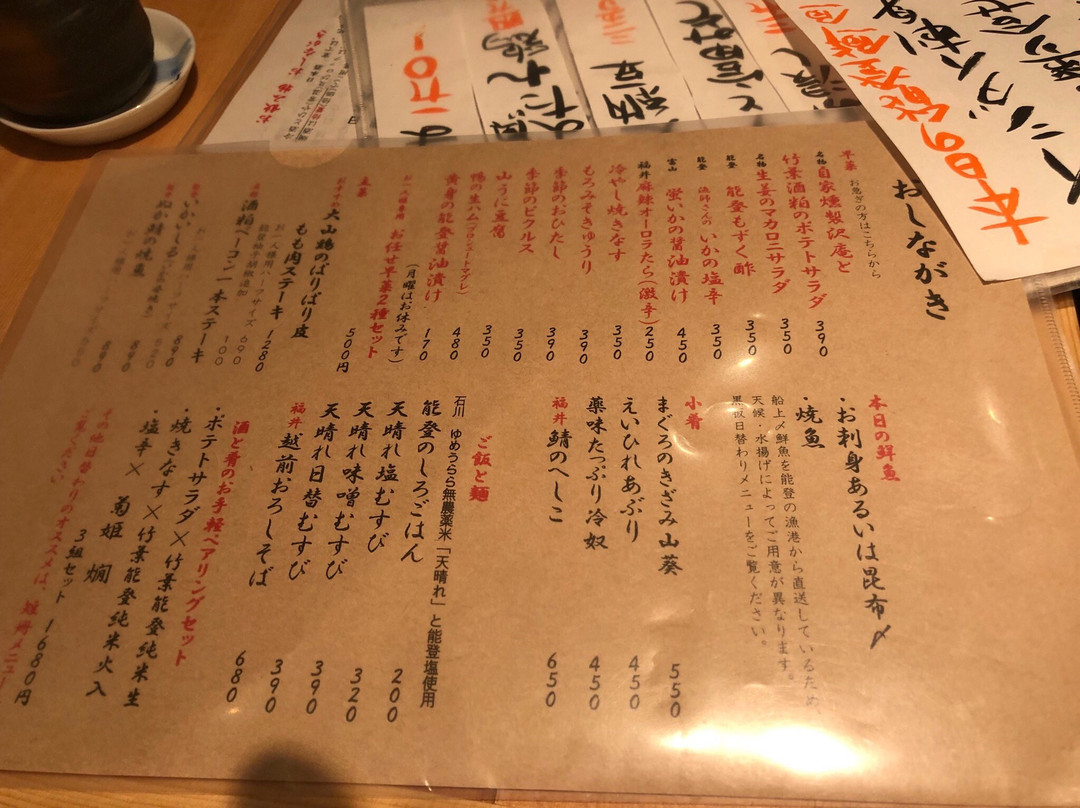 おしながき
早菜 お急ぎの方はこちらから
名物 自家燻製沢庵と
竹葉酒粕のポテトサラダ 390
名物 生姜のマカロニサラダ 350
能登 能登もずく酢 350
能登 漁師さんのいかの塩辛 350
富山 蛍いかの醤油漬け 450
福井 麻辣オーロラたら(激辛) 250
冷やし焼きなす 350
もろみきゅうり 390
季節のおひたし 390
季節のピクルス 350
山うに豆腐 350
鴨の生ハム(フロントマグレ) 480
黄身の能登醤油漬け 170
お一人様専用 お任せ早菜2種セット 500円
(月曜はお休みです)
大山鶏のぱりぱり皮
もも肉ステーキ 1280
お一人様用ハーフサイズ 690
能登柚子胡椒追加 100
酒粕ベーコン一本ステーキ 890
本日の鮮魚
・お刺身あるいは昆布〆
・焼魚
船上〆鮮魚を能登の漁港から直送しているため
天候・水揚げによってご用意が異なります。
黒板日替わりメニューをご覧ください。
小肴
まぐろのきざみ山葵 550
えいひれあぶり 450
薬味たっぷり冷奴 450
福井 鯖のへしこ 650
ご飯と麺
石川 ゆめうらら無農薬米「天晴れ」と能登塩使用
能登のしろごはん 200
天晴れ塩むすび 320
天晴れ味噌むすび 390
天晴れ日替むすび 390
福井 越前おろしそば 680
酒と肴のお手軽ペアリングセット
・ポテトサラダ×竹葉能登純米生
・焼きなす×竹葉能登純米火入
・塩辛× 菊姫 燗
3組セット 1680円
その他日替わりのオススメは、短冊メニュー
ご覧ください
本日の